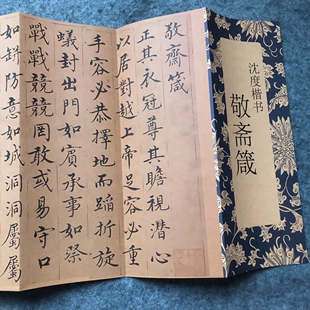 沈度楷书
敬斋箴
敬齋箴
正其衣冠尊其瞻視潛心
以居對越上帝足容必重
手容必恭擇地而蹈折旋
蟻封出門如賓承事如祭
戰戰兢兢罔敢或易守口
如缾防意如城洞洞屬屬